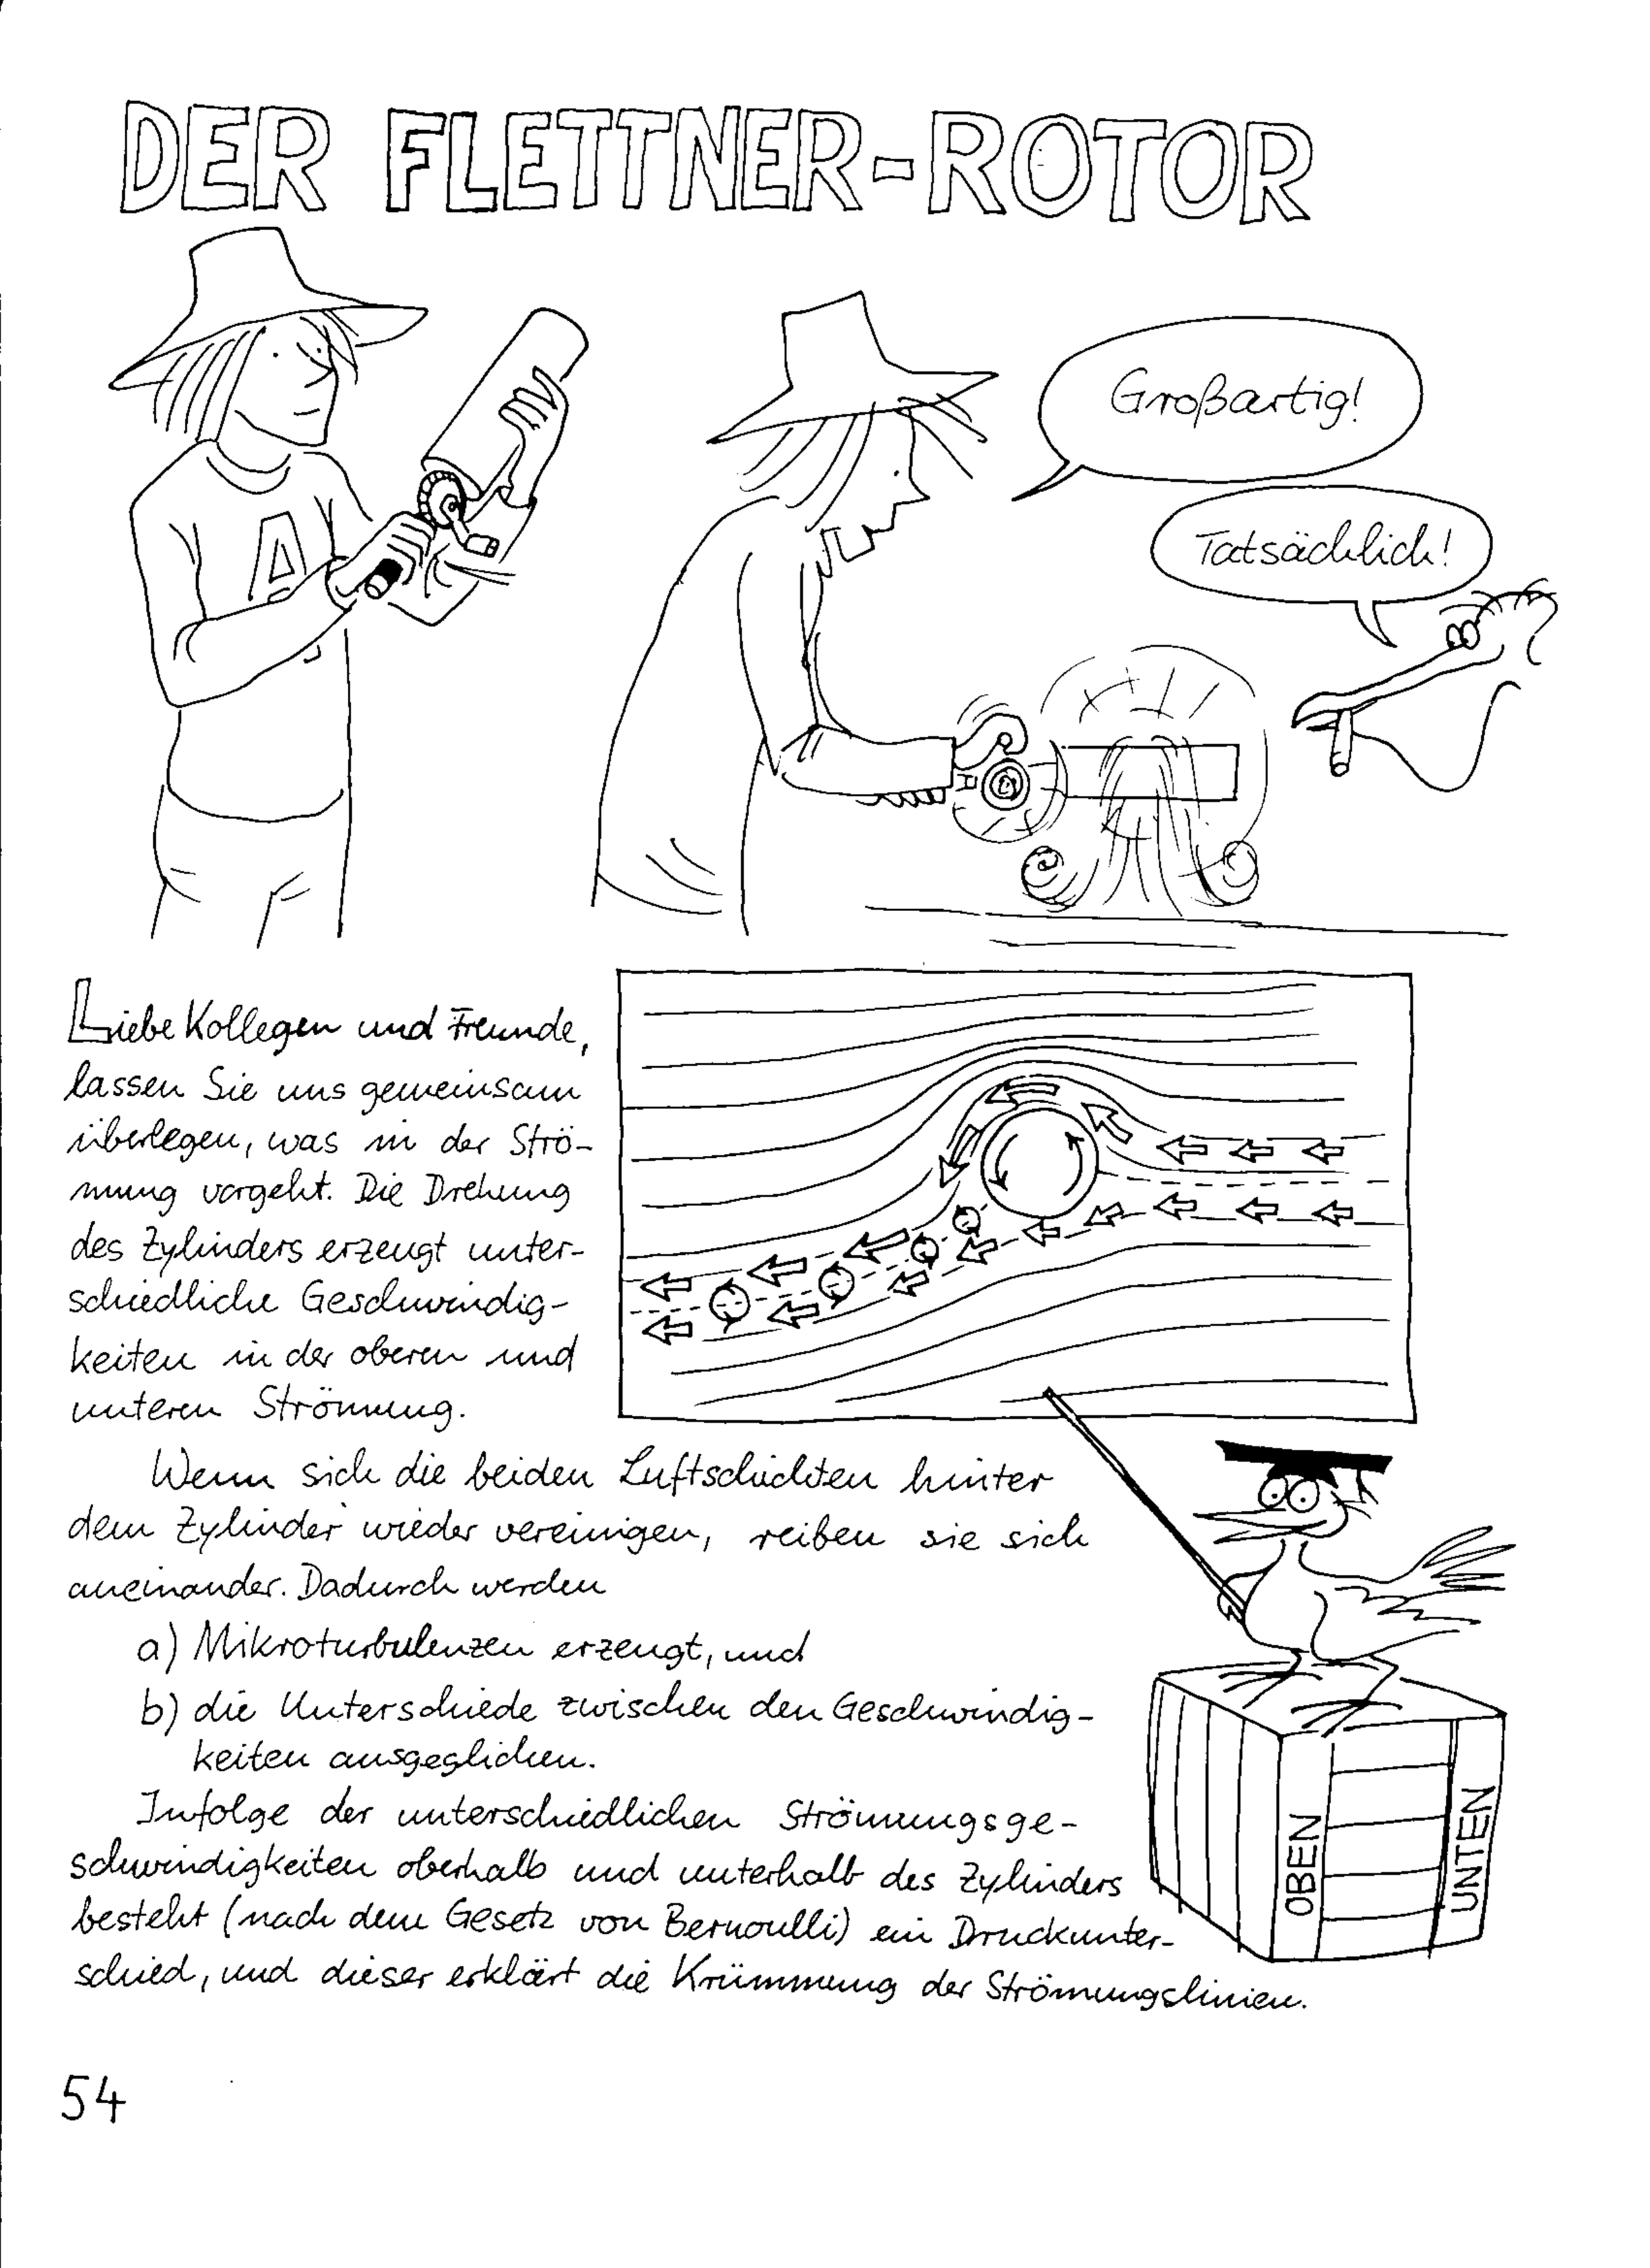 DER FLETTNER-ROTOR
A
Großartig!
Tatsächlich!
Liebe Kollegen und Freunde,
lassen Sie uns gemeinsam
überlegen, was in der Strö-
mung vorgeht. Die Drehung
des Zylinders erzeugt unter-
schiedliche Geschwindig-
keiten in der oberen und
unteren Strömung.
Wenn sich die beiden Luftschichten hinter
dem Zylinder wieder vereinigen, reiben sie sich
aneinander. Dadurch werden
a) Mikroturbulenzen erzeugt, und
b) die Unterschiede zwischen den Geschwindig-
keiten ausgeglichen.
Infolge der unterschiedlichen Strömungsge-
schwindigkeiten oberhalb und unterhalb des Zylinders
besteht (nach dem Gesetz von Bernoulli) ein Druckunter-
schied, und dieser erklärt die Krümmung der Strömungslinien.
OBEN
UNTEN
54